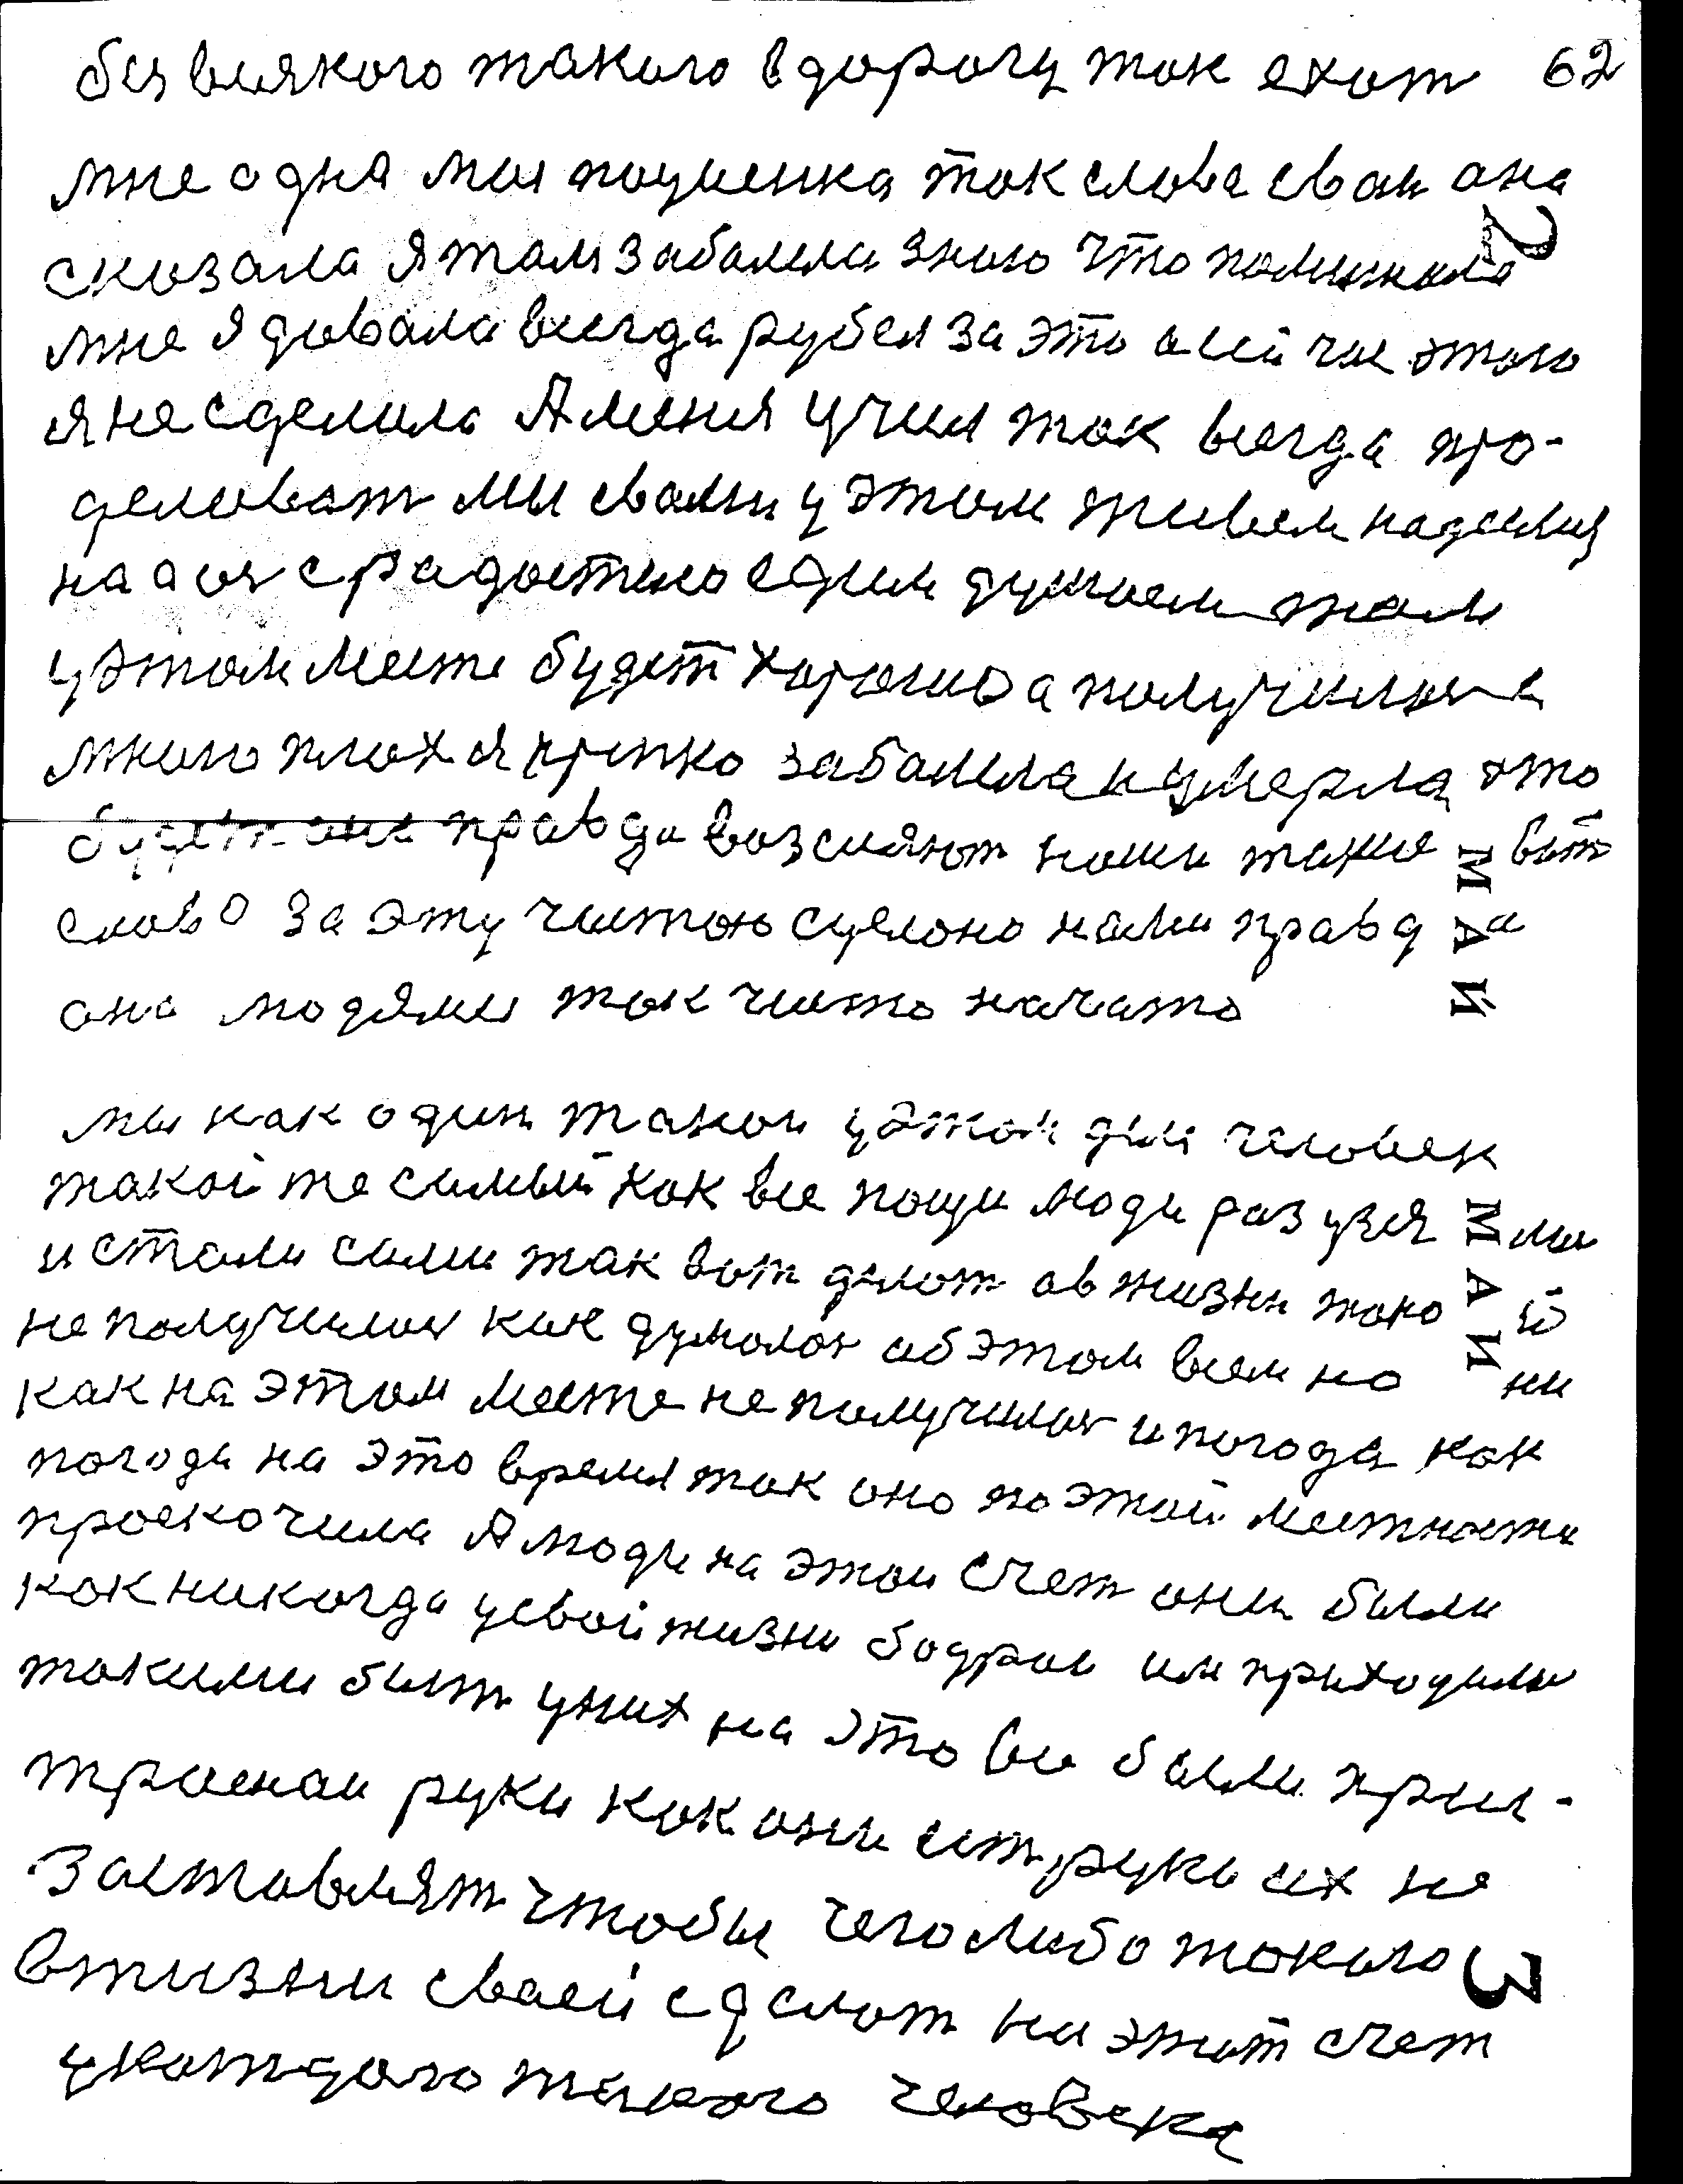 без всякого такого в дорогу так ехат 62
мне одна моя пациенка так слова свои она
сказала я там забалела знаю что помишкала 2
мне я довала всегда рубел за это а сейчас этого
я не сделала А меня учил так всегда про-
деловат мы свами у этом живем надемся
на а он с радостию едим думаем там
у этом месте будет хорошо а получилося
много плоха я крепко забалела и умерла это
будет она правда возсияют наши такие вот
слово за эту чистою сделоно нами правда МАЙ
она людями так чисто начато
мы как один такои у этом дни человек
такой же самый как все нащи люди раз узялис
и стали сами так вот делот ав жизни такой МАЙ
не получилося как думалос об этом всем но ни
как на этом месте не получилос и погода как
погода на это время так оно по этой местности
проскочила А люди на этои счет они были
как никогда усвой жизни бодраи им приходилос
такими быт уних на это все были при-
троенаи руки как они ест руки их не
заставлят чтобы чего либо такого 3
вжизни своей сделот на этот счет
укаждого такого человека